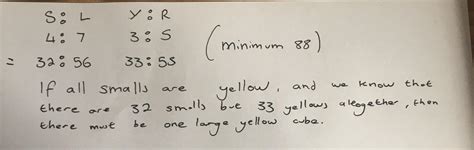 S : L    Y : R
4 : 7    3 : 5    (minimum 88)
= 32 : 56    33 : 55
If all smalls are yellow, and we know that
there are 32 smalls but 33 yellows altogether, then
there must be one large yellow cube.